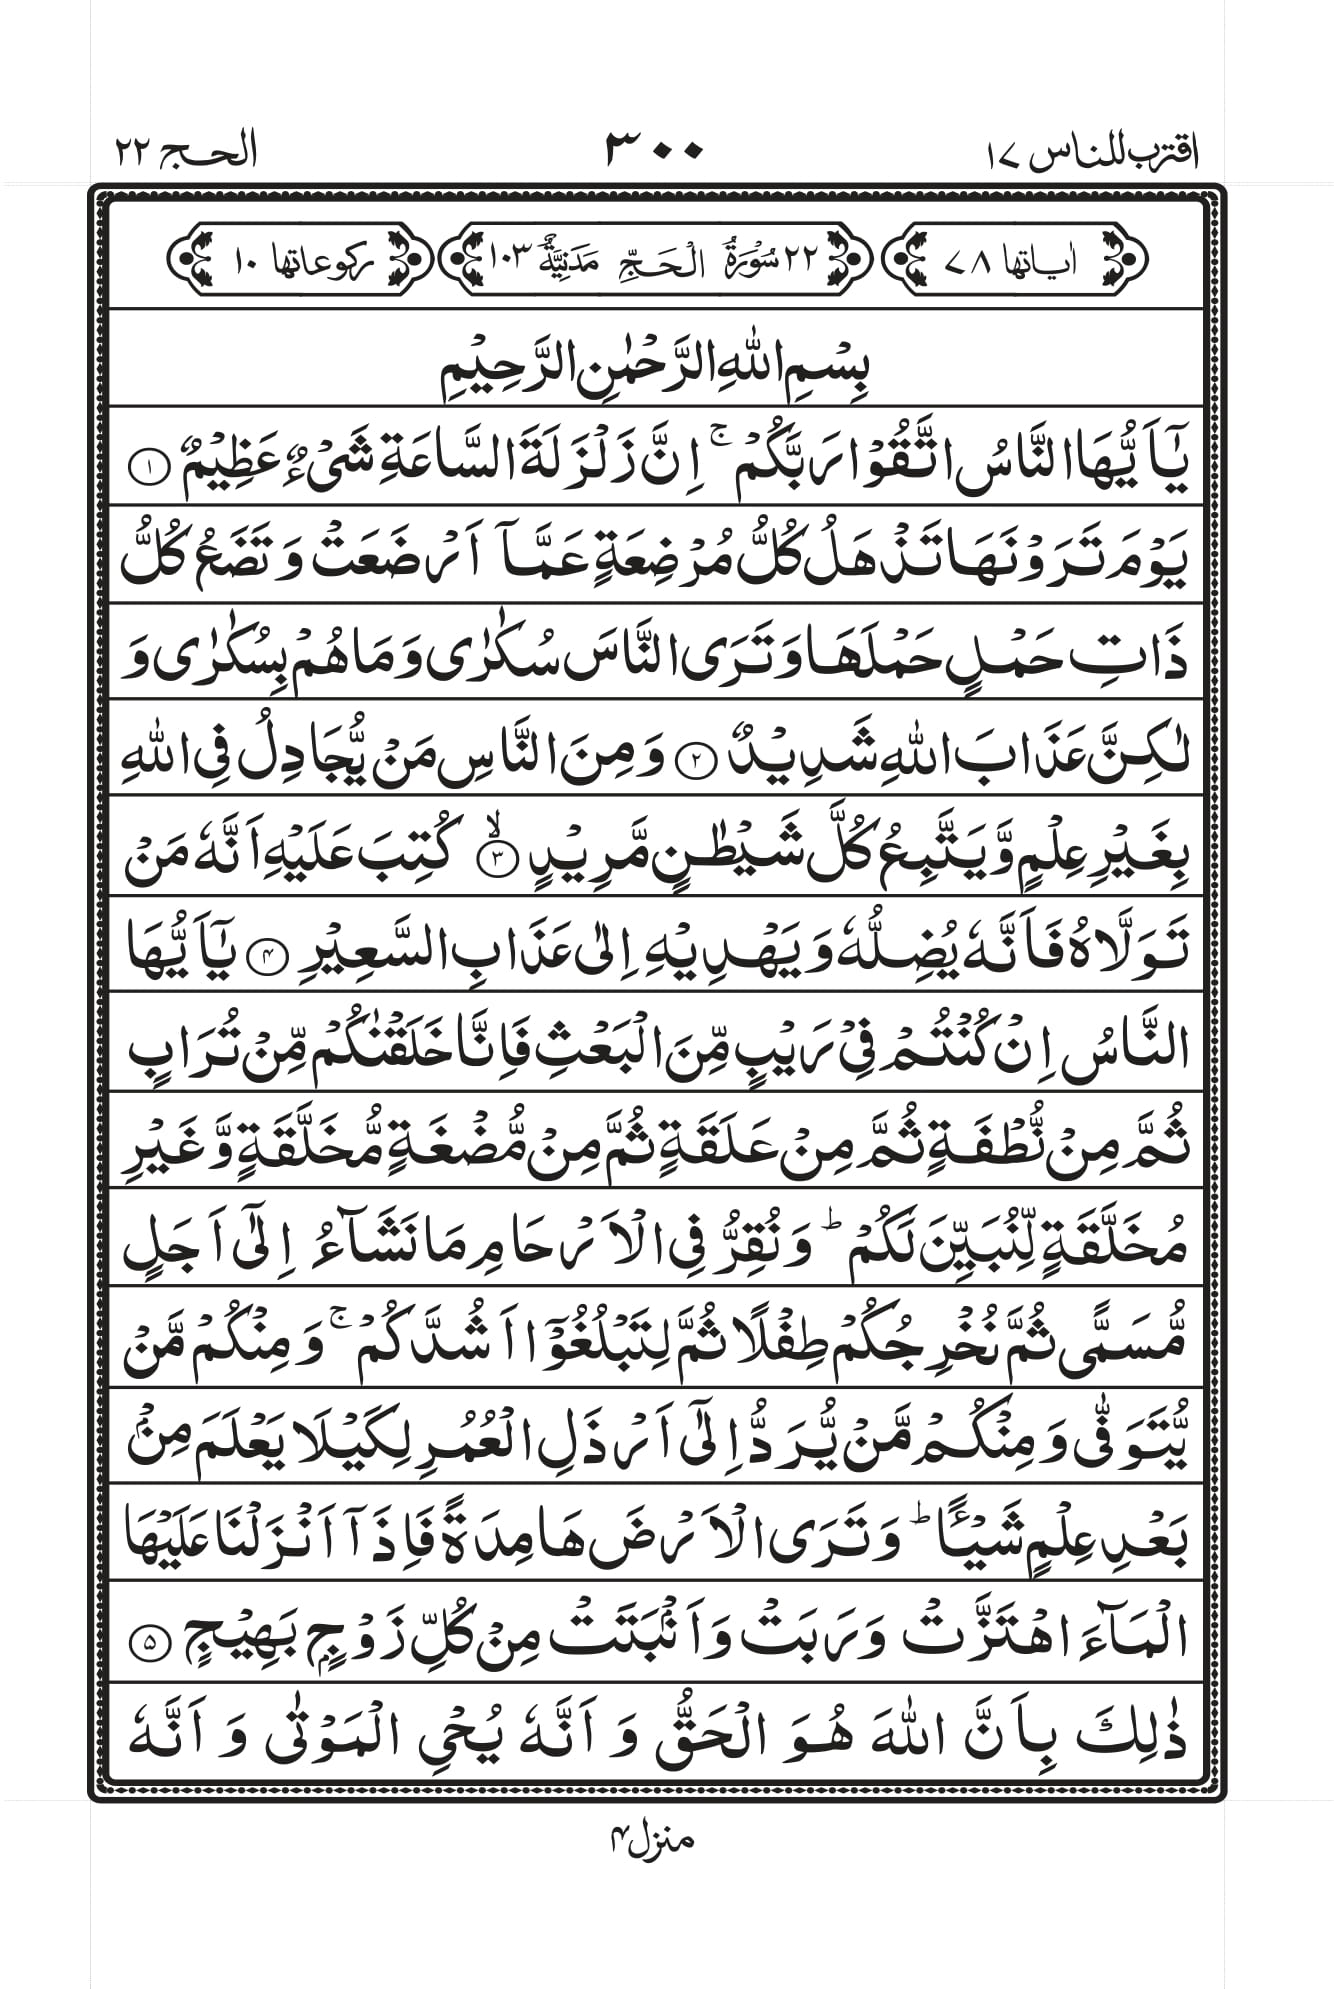 اقترب للناس ١٧ ٣٠٠ الحج ٢٢
اٰیاتها ٧٨ ٢٢ سُوْرَةُ الْحَجِّ مَدَنِیَّةٌ ١٠٣ رکوعاتها ١٠
بِسْمِ اللهِ الرَّحْمٰنِ الرَّحِیْمِ
یٰۤاَیُّهَا النَّاسُ اتَّقُوْا رَبَّكُمْ ۚ اِنَّ زَلْزَلَةَ السَّاعَةِ شَیْءٌ عَظِیْمٌ ۝١
یَوْمَ تَرَوْنَهَا تَذْهَلُ كُلُّ مُرْضِعَةٍ عَمَّاۤ اَرْضَعَتْ وَ تَضَعُ كُلُّ
ذَاتِ حَمْلٍ حَمْلَهَا وَ تَرَی النَّاسَ سُكٰرٰی وَ مَا هُمْ بِسُكٰرٰی وَ
لٰكِنَّ عَذَابَ اللهِ شَدِیْدٌ ۝٢ وَ مِنَ النَّاسِ مَنْ یُّجَادِلُ فِی اللهِ
بِغَیْرِ عِلْمٍ وَّ یَتَّبِعُ كُلَّ شَیْطٰنٍ مَّرِیْدٍ ۙ۝٣ كُتِبَ عَلَیْهِ اَنَّهٗ مَنْ
تَوَلَّاهُ فَاَنَّهٗ یُضِلُّهٗ وَ یَهْدِیْهِ اِلٰی عَذَابِ السَّعِیْرِ ۝٤ یٰۤاَیُّهَا
النَّاسُ اِنْ كُنْتُمْ فِیْ رَیْبٍ مِّنَ الْبَعْثِ فَاِنَّا خَلَقْنٰكُمْ مِّنْ تُرَابٍ
ثُمَّ مِنْ نُّطْفَةٍ ثُمَّ مِنْ عَلَقَةٍ ثُمَّ مِنْ مُّضْغَةٍ مُّخَلَّقَةٍ وَّ غَیْرِ
مُخَلَّقَةٍ لِّنُبَیِّنَ لَكُمْ ؕ وَ نُقِرُّ فِی الْاَرْحَامِ مَا نَشَآءُ اِلٰۤی اَجَلٍ
مُّسَمًّی ثُمَّ نُخْرِجُكُمْ طِفْلًا ثُمَّ لِتَبْلُغُوْۤا اَشُدَّكُمْ ۚ وَ مِنْكُمْ مَّنْ
یُّتَوَفّٰی وَ مِنْكُمْ مَّنْ یُّرَدُّ اِلٰۤی اَرْذَلِ الْعُمُرِ لِكَیْلَا یَعْلَمَ مِنْۢ
بَعْدِ عِلْمٍ شَیْـًٔا ؕ وَ تَرَی الْاَرْضَ هَامِدَةً فَاِذَاۤ اَنْزَلْنَا عَلَیْهَا
الْمَآءَ اهْتَزَّتْ وَ رَبَتْ وَ اَنْۢبَتَتْ مِنْ كُلِّ زَوْجٍۭ بَهِیْجٍ ۝٥
ذٰلِكَ بِاَنَّ اللهَ هُوَ الْحَقُّ وَ اَنَّهٗ یُحْیِ الْمَوْتٰی وَ اَنَّهٗ
منزل ۴